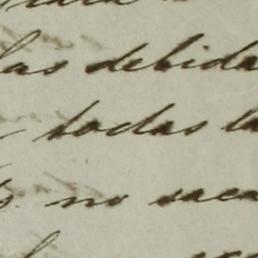 las debida
todas la
no saca